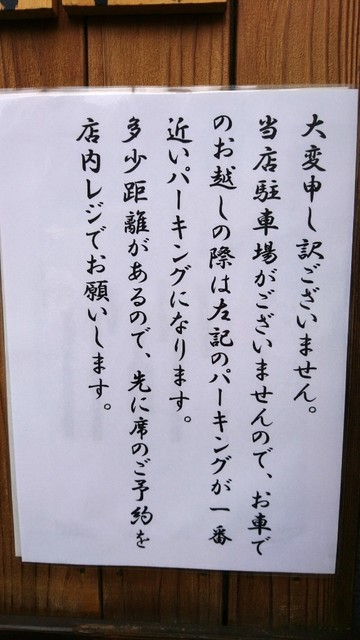 大変申し訳ございません。
当店駐車場がございませんので、お車で
のお越しの際は左記のパーキングが一番
近いパーキングになります。
多少距離があるので、先に席のご予約を
店内レジでお願いします。